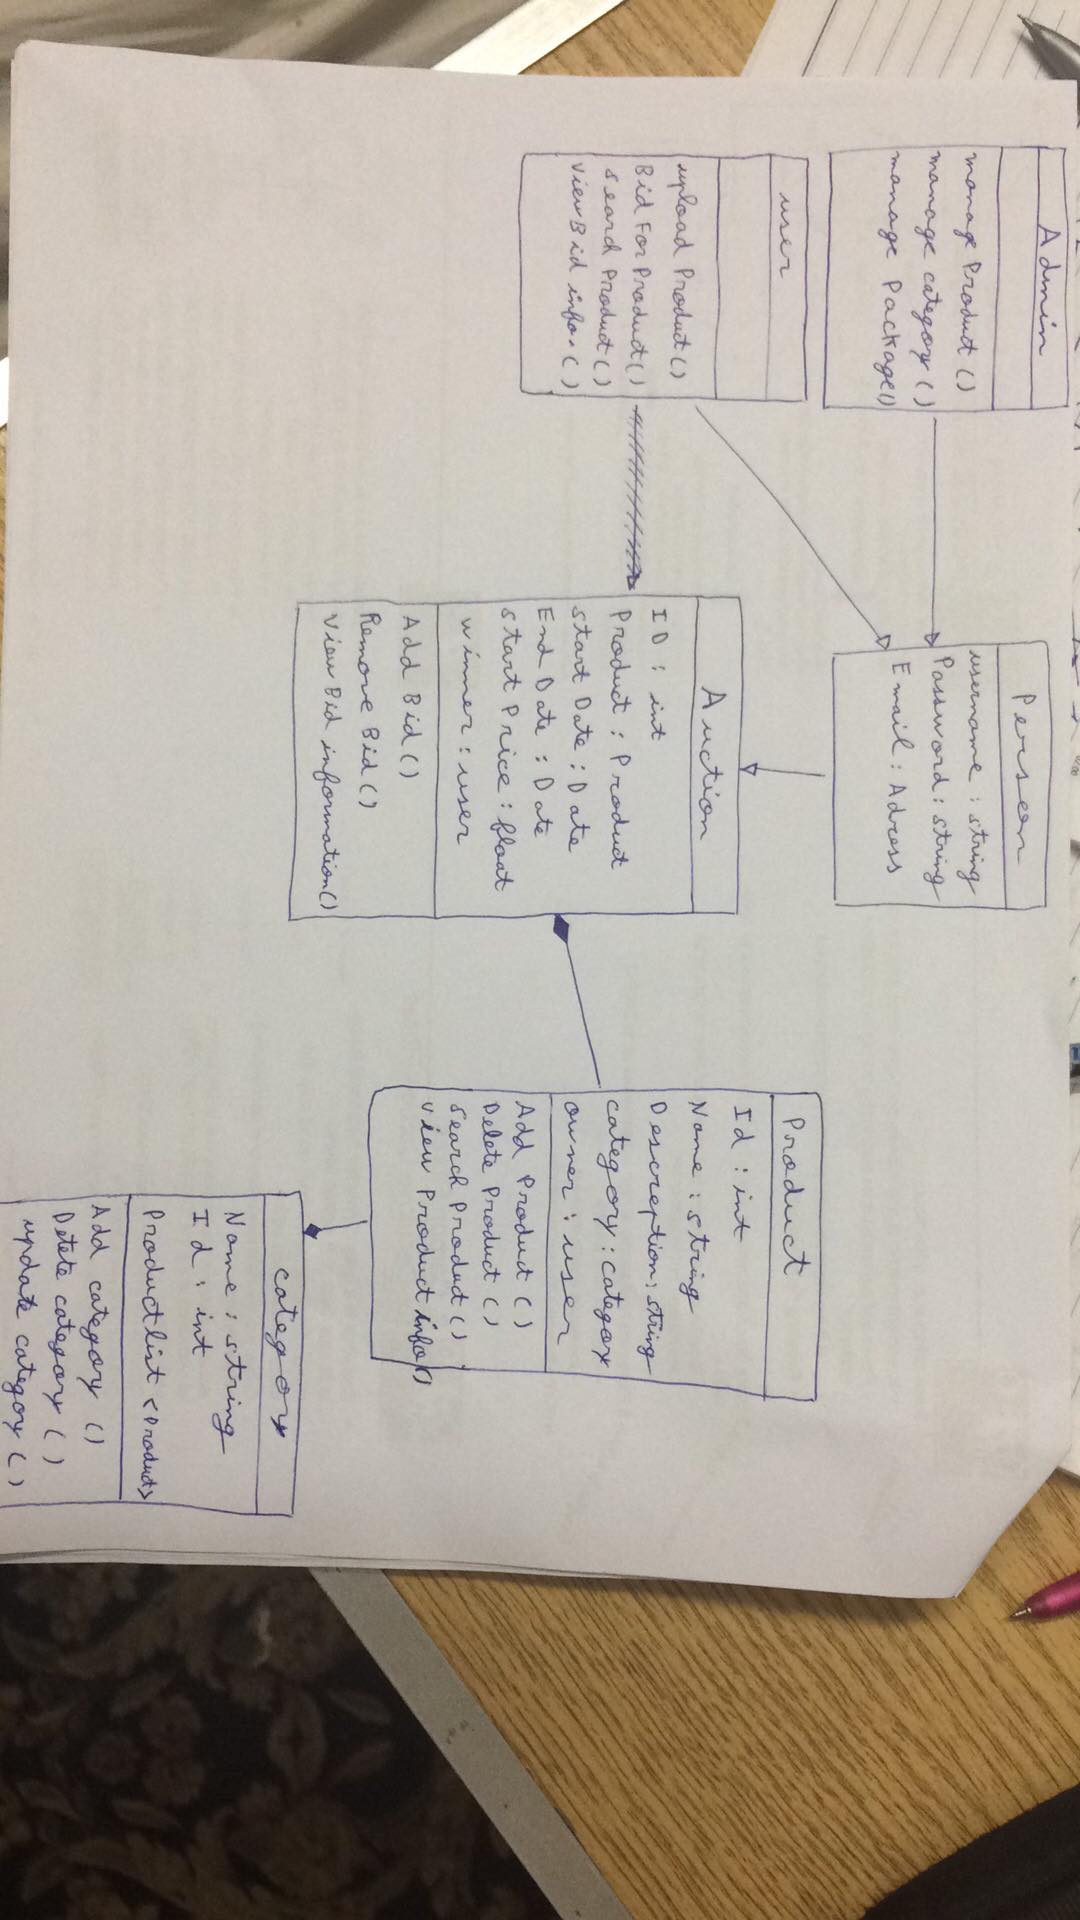 Admin
manage Product ()
manage category ()
manage Package()
user
upload Product()
Bid For Product()
search Product()
view Bid info.()
Person
username : string
Password : string
Email : Adress
Auction
ID : int
Product : Product
start Date : Date
End Date : Date
start Price : float
winner : user
Add Bid ()
Remove Bid ()
view Bid information()
Product
Id : int
Name : string
Descreption ; string
category : category
owner : user
Add Product ()
Delete Product ()
search Product ()
view Product info()
category
Name : string
Id : int
Product list <Product>
Add category ()
Detete category ()
update category ()